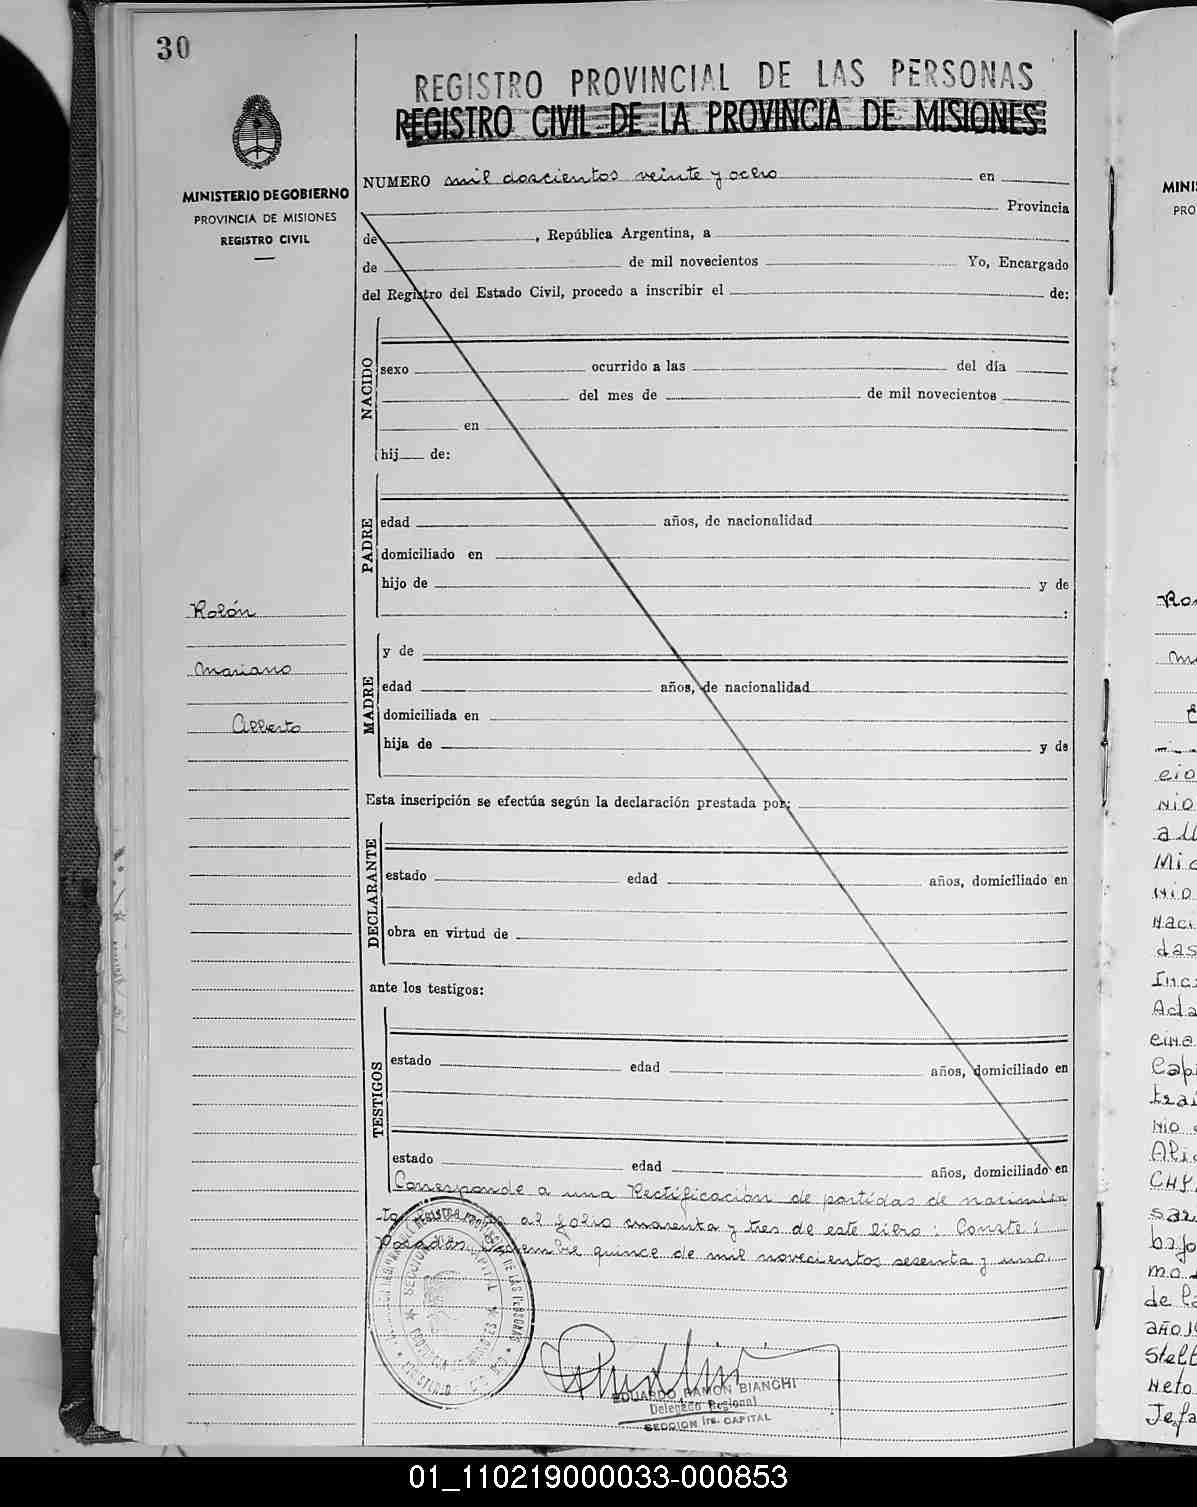 30
REGISTRO PROVINCIAL DE LAS PERSONAS
REGISTRO CIVIL DE LA PROVINCIA DE MISIONES
MINISTERIO DE GOBIERNO
PROVINCIA DE MISIONES
REGISTRO CIVIL
NUMERO mil doscientos veinte y ocho en
Provincia
de , República Argentina, a
de de mil novecientos Yo, Encargado
del Registro del Estado Civil, procedo a inscribir el de:
NACIDO
sexo ocurrido a las del día
del mes de de mil novecientos
en
hij de:
PADRE
edad años, de nacionalidad
domiciliado en
hijo de y de
:
Rolón
Mariano
Alberto
MADRE
y de
edad años, de nacionalidad
domiciliada en
hija de y de
Esta inscripción se efectúa según la declaración prestada por:
DECLARANTE
estado edad años, domiciliado en
obra en virtud de
ante los testigos:
TESTIGOS
estado edad años, domiciliado en
estado edad años, domiciliado en
Corresponde a una Rectificación de partidas de nacimien
to al folio cuarenta y tres de este libro: Conste:
Posadas, quince de mil novecientos sesenta y uno.
EDUARDO RAMON BIANCHI
Delegado Regional
SECCION 1ra. CAPITAL
MINI
PRO
das
Acta
Capi
bajo
de la
Neto
Jefa
01_110219000033-000853